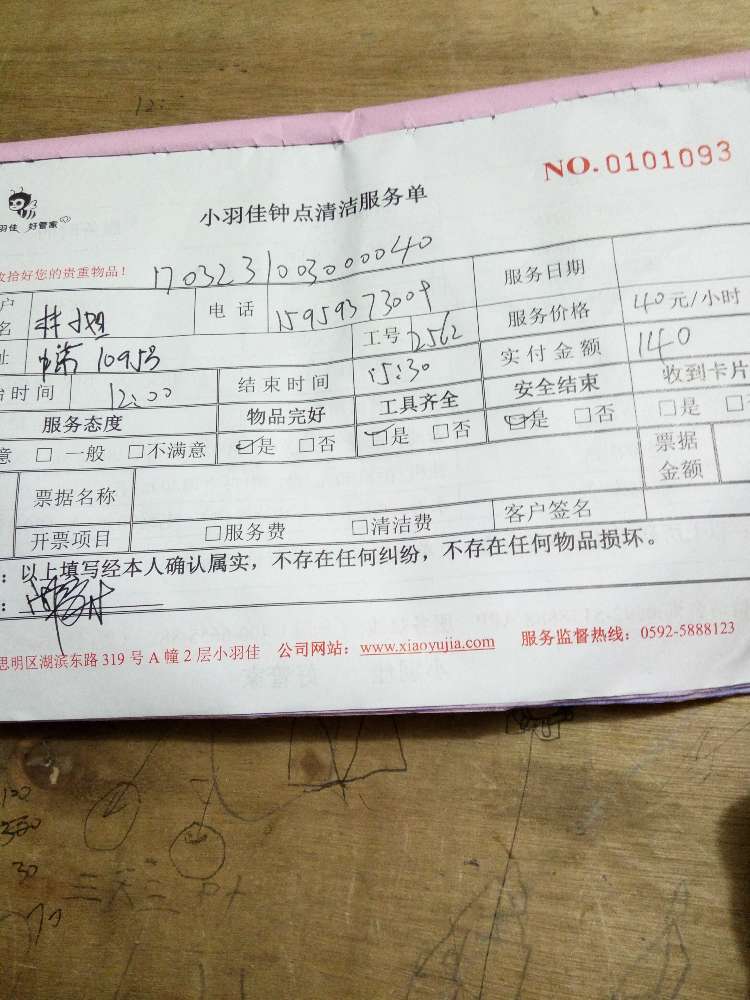 12:
NO.0101093
羽佳 好管家
小羽佳钟点清洁服务单
收拾好您的贵重物品！
1703231003000040
户名 林小姐 电话 15959373009 服务日期
址 1095号 工号 D562 服务价格 40元/小时
始时间 12:00 结束时间 15:30 实付金额 140
服务态度 物品完好 工具齐全 安全结束 收到卡片
意 □ 一般 □不满意 ☑是 □否 ☑是 □否 ☑是 □否 □是 □
票据名称 票据金额
开票项目 □服务费 □清洁费 客户签名
：以上填写经本人确认属实，不存在任何纠纷，不存在任何物品损坏。
思明区湖滨东路 319 号 A 幢 2 层小羽佳 公司网站：www.xiaoyujia.com 服务监督热线：0592-5888123
30